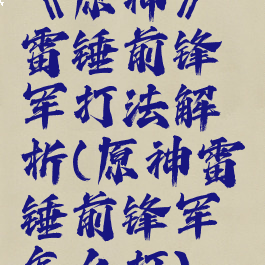 《原神》
雷锤前锋
军打法解
析(原神雷
锤前锋军
怎么打)